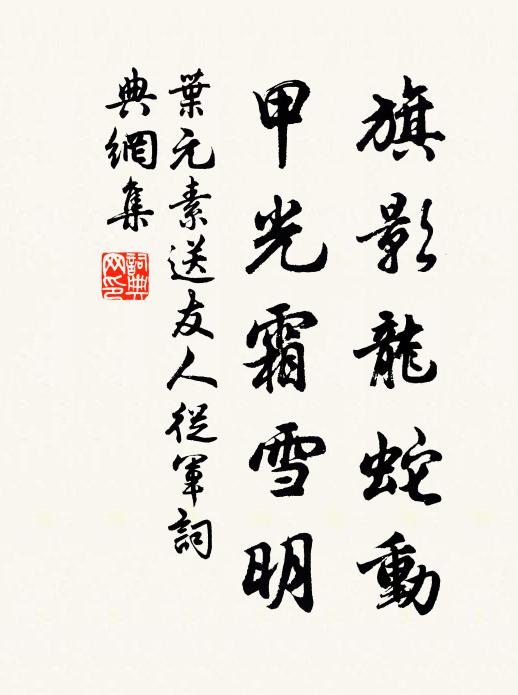 旗影龍蛇動
甲光霜雪明
葉元素送友人從軍詞
典網集
詞典網印